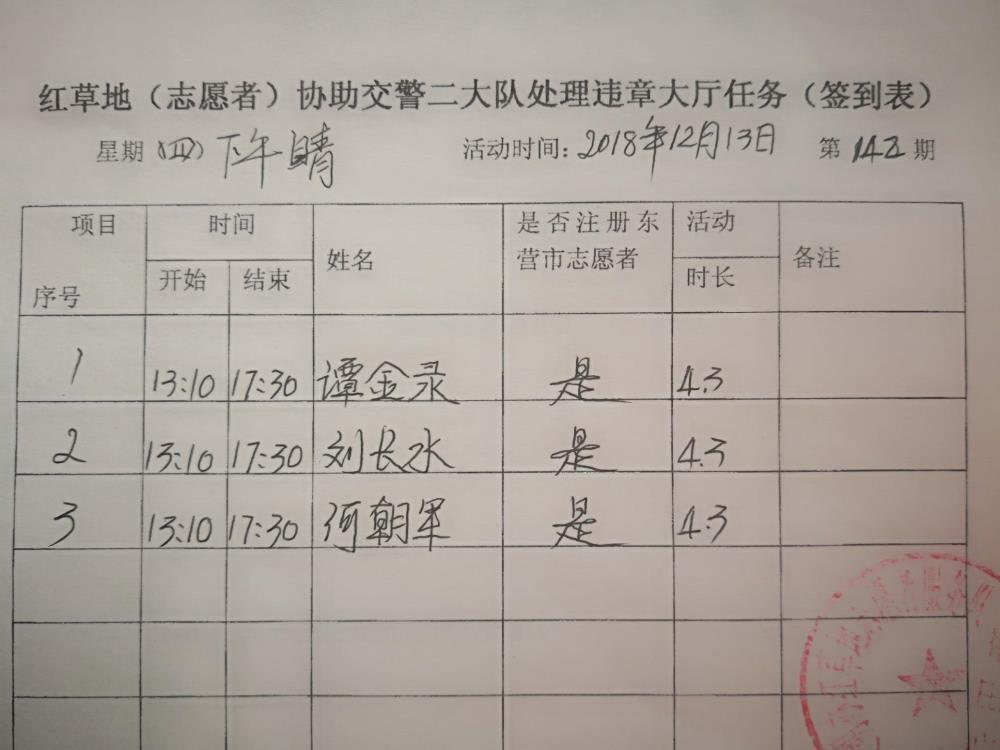 红草地（志愿者）协助交警二大队处理违章大厅任务（签到表）
星期（四）下午晴 活动时间：2018年12月13日 第142期
项目 时间 是否注册东 活动
姓名 营市志愿者 备注
序号 开始 结束 时长
1 13:10 17:30 谭金录 是 4.3
2 13:10 17:30 刘长水 是 4.3
3 13:10 17:30 何朝军 是 4.3